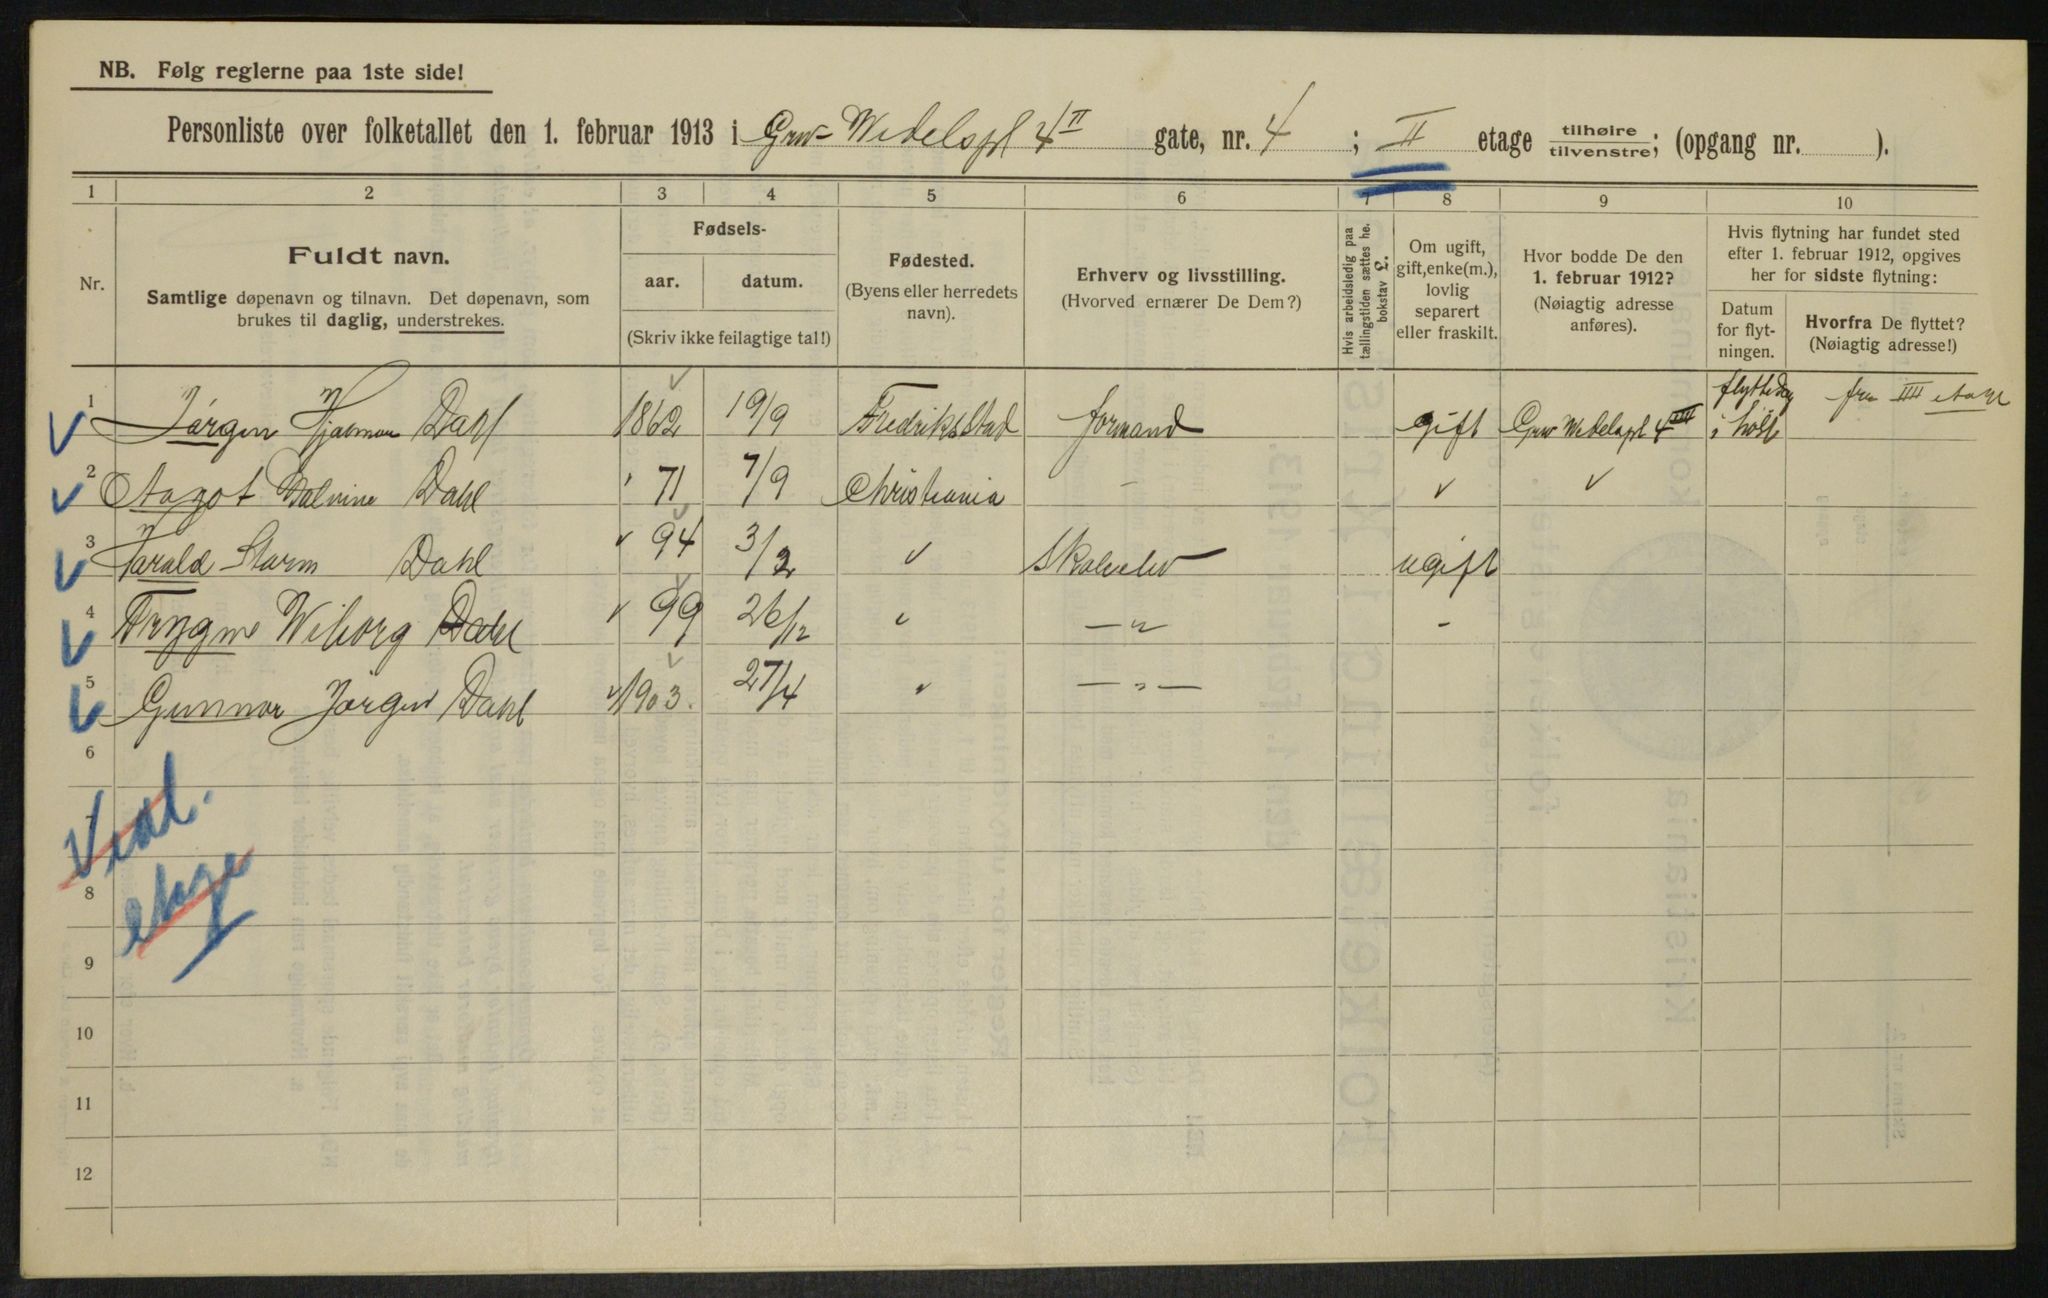 NB. Følg reglerne paa 1ste side!
Personliste over folketallet den 1. februar 1913 i Grw Wedelspl 4 II gate, nr. 4 ; II etage tilhøire tilvenstre; (opgang nr. ).
1 2 3 4 5 6 7 8 9 10
Nr.
Fuldt navn.
Samtlige døpenavn og tilnavn. Det døpenavn, som
brukes til daglig, understrekes.
Fødsels-
aar. datum.
(Skriv ikke feilagtige tal!)
Fødested.
(Byens eller herredets
navn).
Erhverv og livsstilling.
(Hvorved ernærer De Dem?)
Hvis arbeidsledig paa
tællingstiden sættes he.
bokstav L.
Om ugift,
gift, enke(m.),
lovlig
separert
eller fraskilt.
Hvor bodde De den
1. februar 1912?
(Nøiagtig adresse
anføres).
Hvis flytning har fundet sted
efter 1. februar 1912, opgives
her for sidste flytning:
Datum
for flyt-
ningen.
Hvorfra De flyttet?
(Nøiagtig adresse!)
1 Jørgen Hjalmar Dahl 1862 19/9 Fredriksstad formand gift Grw Wedelspl 4 IIII flyttedag i høst fra IIII etage
2 Aagot Dahl 71 7/9 Christiania -
3 Harald Storm Dahl 94 3/2 Skoleelev ugift
4 Trygve Wiborg Dahl 99 26/12 — " — -
5 Gunnar Jørgen Dahl 1903. 27/4 — " —
6
7
8
9
10
11
12